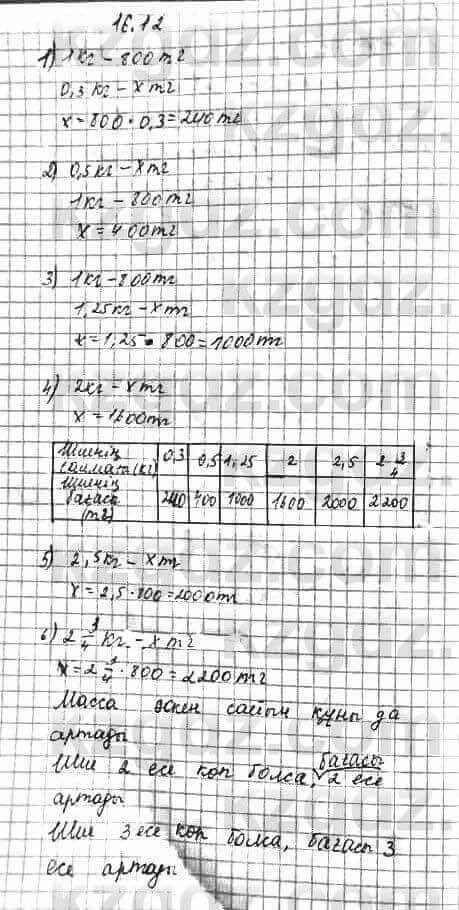 16.12
1) 1кг – 800тг
0,3 кг – x тг
x = 800 · 0,3 = 240тг
2) 0,5кг – xтг
1кг – 800тг
x = 400тг
3) 1кг – 800тг
1,25кг – xтг
x = 1,25 · 800 = 1000тг
4) 2кг – xтг
x = 1600тг
Шиенің салмағы (кг) 0,3 0,5 1,25 2 2,5 2 3/4
Шиенің бағасы (тг) 240 400 1000 1600 2000 2200
5) 2,5кг – xтг
x = 2,5 · 800 = 2000тг
6) 2 3/4 кг – xтг
x = 2 3/4 · 800 = 2200тг
Масса өскен сайын құны да
артады
Шие 2 есе көп болса, бағасы 2 есе
артады
Шие 3 есе көп болса, бағасы 3
есе артады